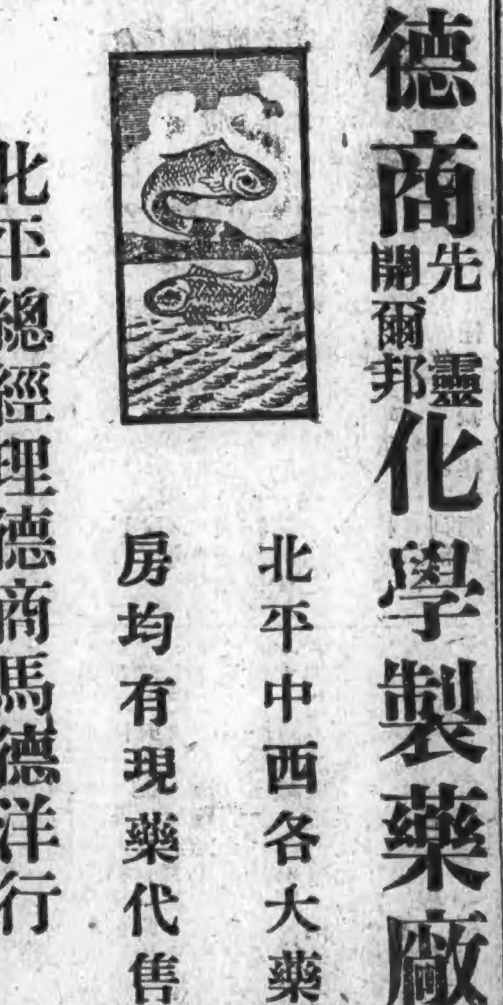 德商先靈開爾邦化學製藥廠
北平中西各大藥
房均有現藥代售
北平總經理德商馬德洋行